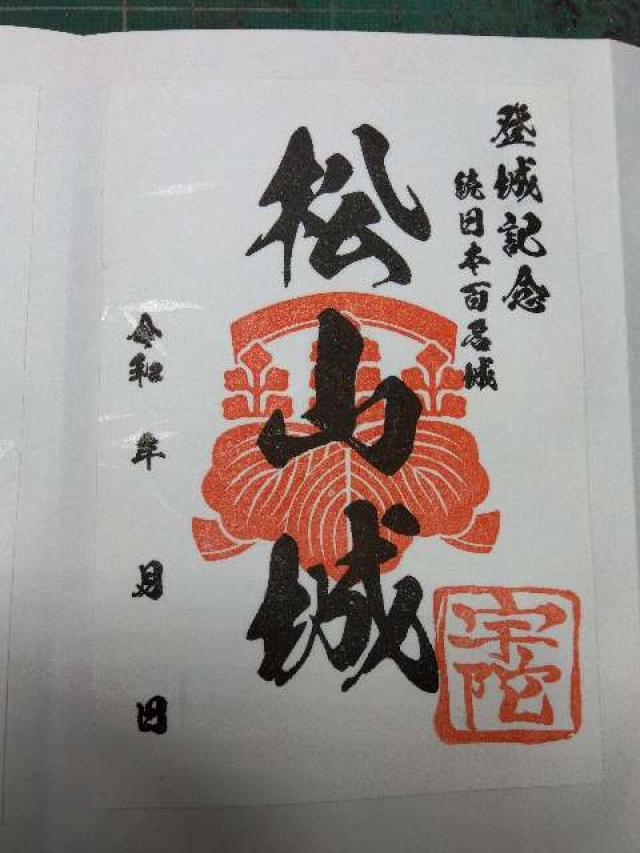 登城記念
続日本百名城
松山城
宇陀
令和 年 月 日